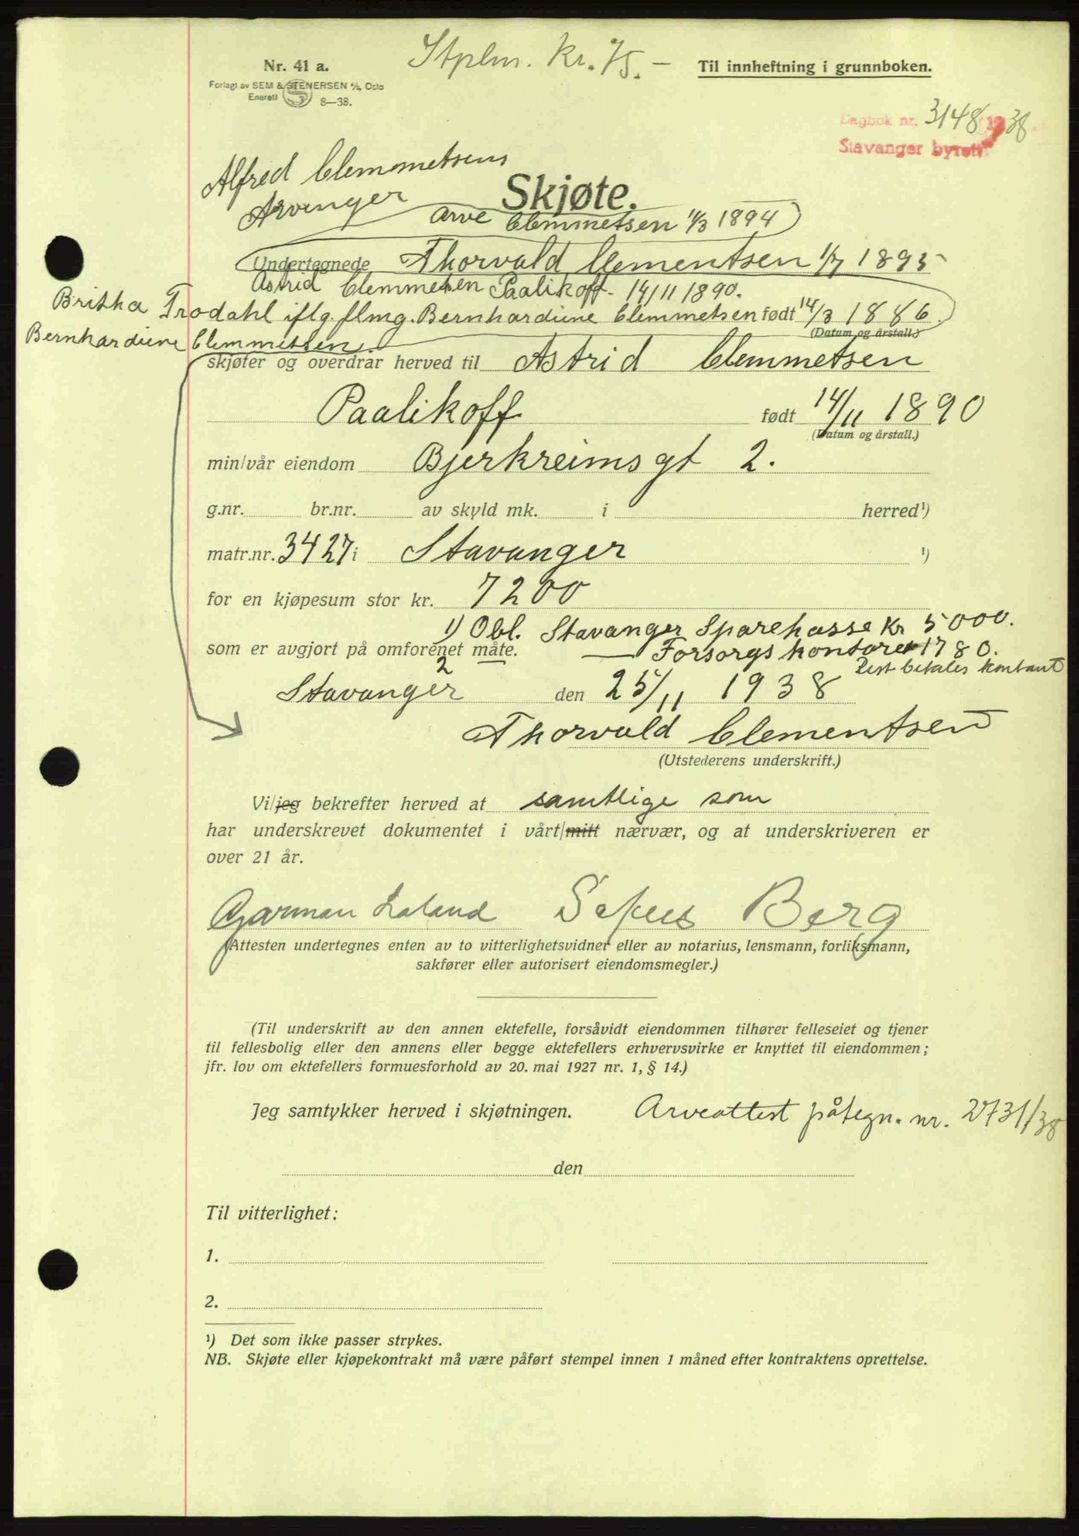 Stplm. Kr. 75.-
Nr. 41 a.
Til innheftning i grunnboken.
Forlagt av SEM & STENERSEN A/S, Oslo
Enerett S 8—38.
Dagbok nr. 3148 1938
Stavanger byrett
Alfred Clemmetsens
Arvinger
Skjøte.
Arve Clemmetsen 11/3 1894
Undertegnede Thorvald Clementsen 1/7 1895
Astrid Clemmetsen Paalikoff - 14/11 1890.
Britha Trodahl iflg. flmg. Bernhardine Clemmetsen født 14/3 1886.
(Datum og årstall.)
Bernhardine Clemmetsen
skjøter og overdrar herved til Astrid Clemmetsen
Paalikoff født 14/11 1890
(Datum og årstall.)
min/vår eiendom Bjerkreimsgt 2.
g.nr. br.nr. av skyld mk. i herred¹)
matr.nr. 3427 i Stavanger ¹)
for en kjøpesum stor kr. 7200
1) Obl. Stavanger Sparekasse Kr 5000.
som er avgjort på omforenet måte.
2 — Forsorgskontoret 1780.
Rest betales kontant
Stavanger den 25/11 1938
Thorvald Clementsen
(Utstederens underskrift.)
Vi/jeg bekrefter herved at samtlige som
har underskrevet dokumentet i vårt/mitt nærvær, og at underskriveren er
over 21 år.
Garman Laland Berg
(Attesten undertegnes enten av to vitterlighetsvidner eller av notarius, lensmann, forliksmann,
sakfører eller autorisert eiendomsmegler.)
(Til underskrift av den annen ektefelle, forsåvidt eiendommen tilhører felleseiet og tjener
til fellesbolig eller den annens eller begge ektefellers erhvervsvirke er knyttet til eiendommen;
jfr. lov om ektefellers formuesforhold av 20. mai 1927 nr. 1, § 14.)
Jeg samtykker herved i skjøtningen.
Arveattest påtegn. nr. 2731/38
den
Til vitterlighet:
1.
2.
¹) Det som ikke passer strykes.
NB. Skjøte eller kjøpekontrakt må være påført stempel innen 1 måned efter kontraktens oprettelse.